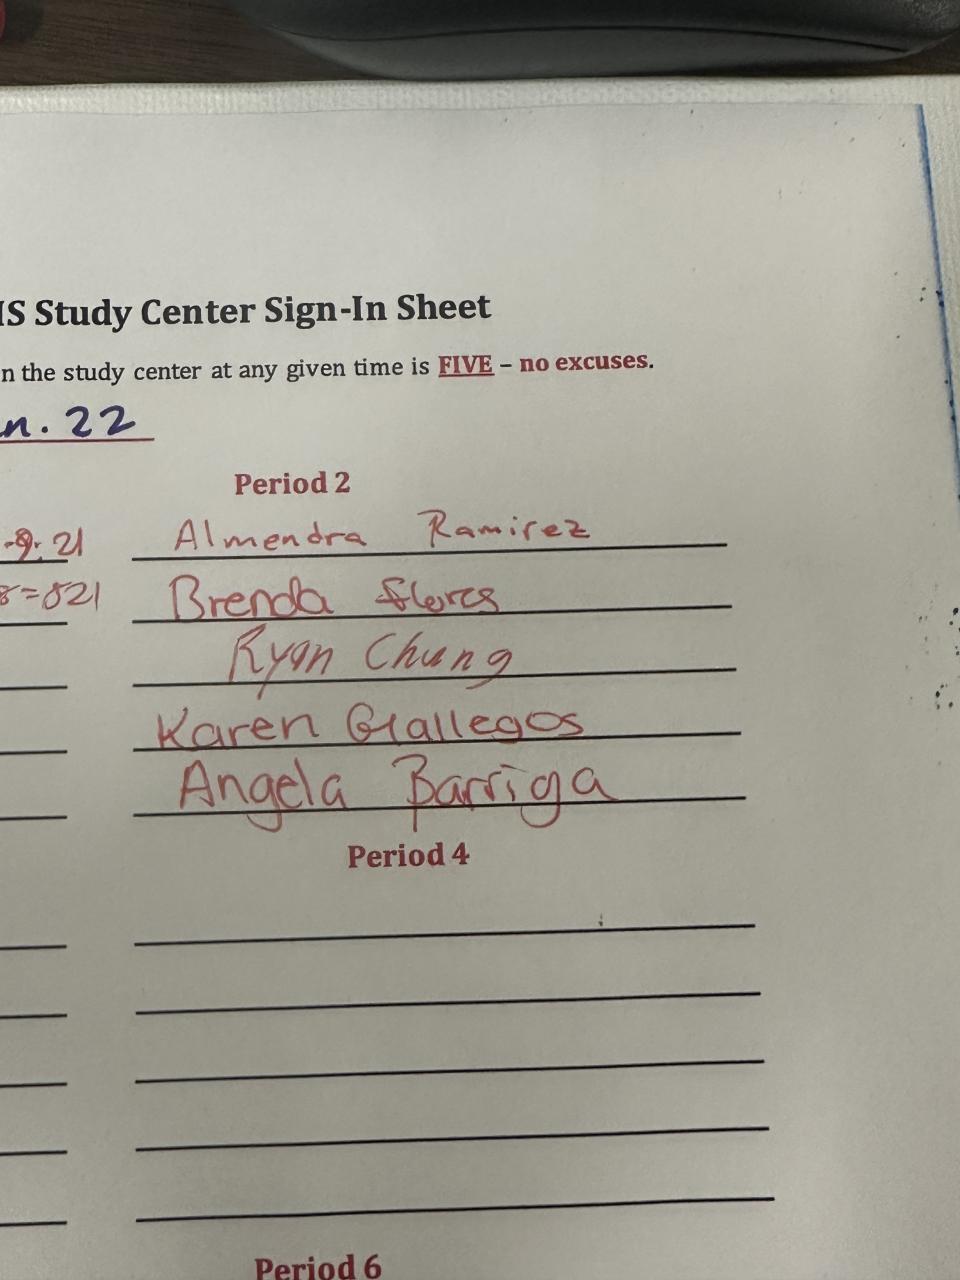 IS Study Center Sign-In Sheet
n the study center at any given time is FIVE – no excuses.
n. 22
Period 2
21 Almendra Ramirez
=821 Brenda flores
Ryan Chung
Karen Gallegos
Angela Barriga
Period 4
Period 6